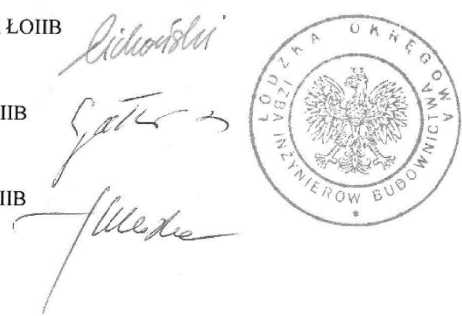 ŁOIIB
Cichoński
IIB
IIB
ŁÓDZKA OKRĘGOWA
IZBA INŻYNIERÓW BUDOWNICTWA
*